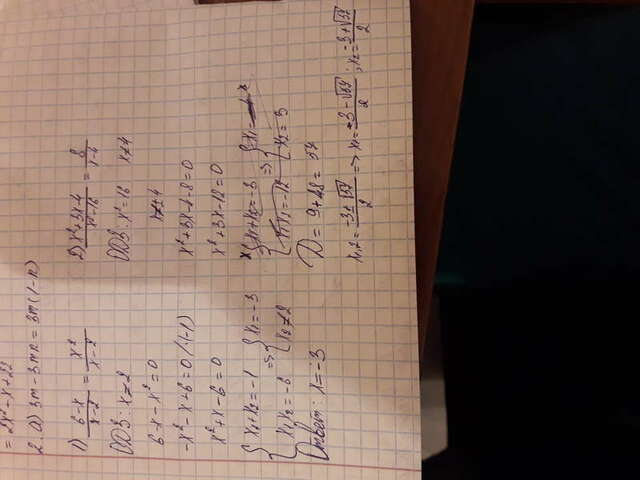 = 2x² - x + 22
2. а) 3m - 3mn = 3m(1-n)
1) 6-x / x-2 = x² / x-2
ОДЗ: x≠2
6-x-x²=0
-x²-x+6=0 /·(-1)
x²+x-6=0
{ x₁+x₂=-1 => { x₁=-3
x₁x₂=-6 x₂≠2
Ответ: x=-3
2) x²+3x-4 / x²-16 = 8 / x-4
ОДЗ: x²=16 x≠4
x≠±4
x²+3x-4-8=0
x²+3x-12=0
x { x₁+x₂=-3 => { x₁=
x₁x₂=-12 x₂=3
D = 9+48 = 57
x₁,₂ = -3±√57 / 2 => x₁= -3-√57 / 2 ; x₂= -3+√57 / 2